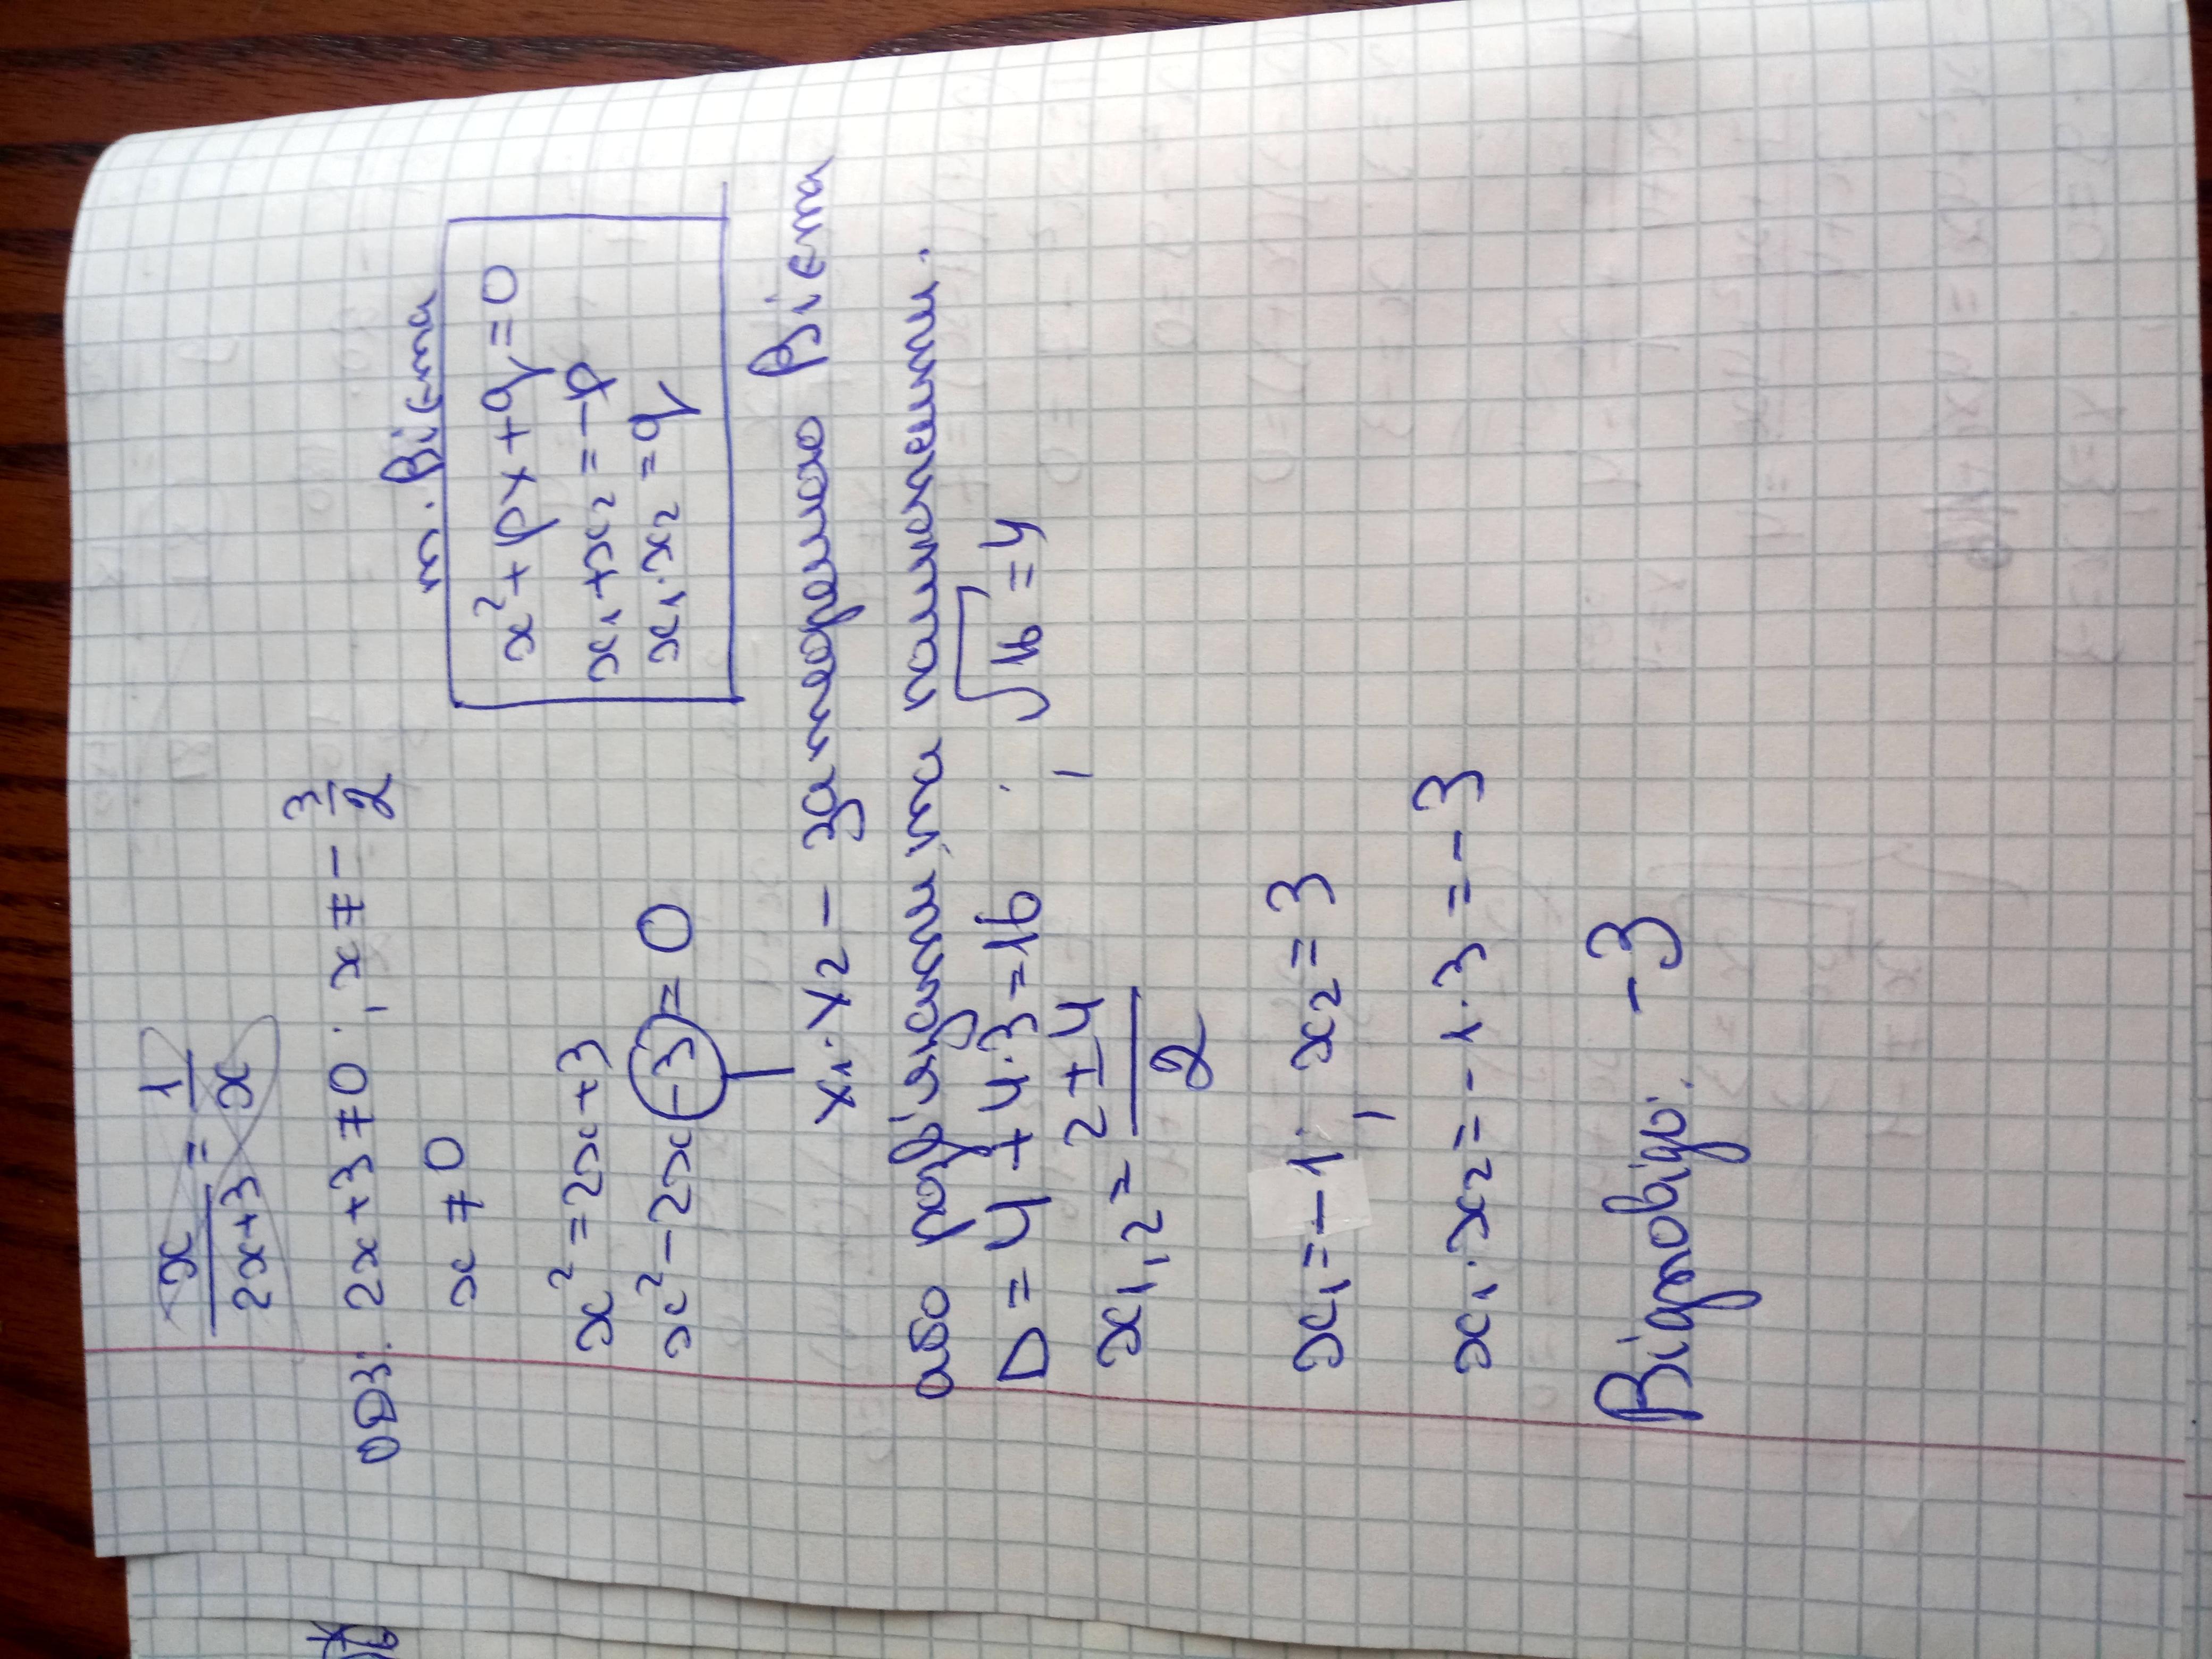 x/(2x+3) = 1/x
ОДЗ: 2x+3≠0; x≠-3/2
x≠0
т. Вієта
x²+px+q=0
x₁+x₂=-p
x₁·x₂=q
x²=2x+3
x²-2x-3=0
x₁·x₂ - за теоремою Вієта
або розв'язати і та помножити.
D=4+4·3=16 ; √16=4
x₁,₂=(2±4)/2
x₁=-1; x₂=3
x₁·x₂=-1·3=-3
Відповідь: -3